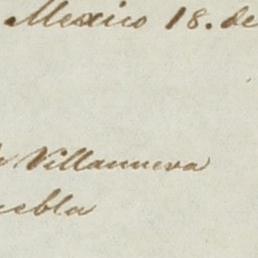 Mexico 18. de
Villanueva
uebla